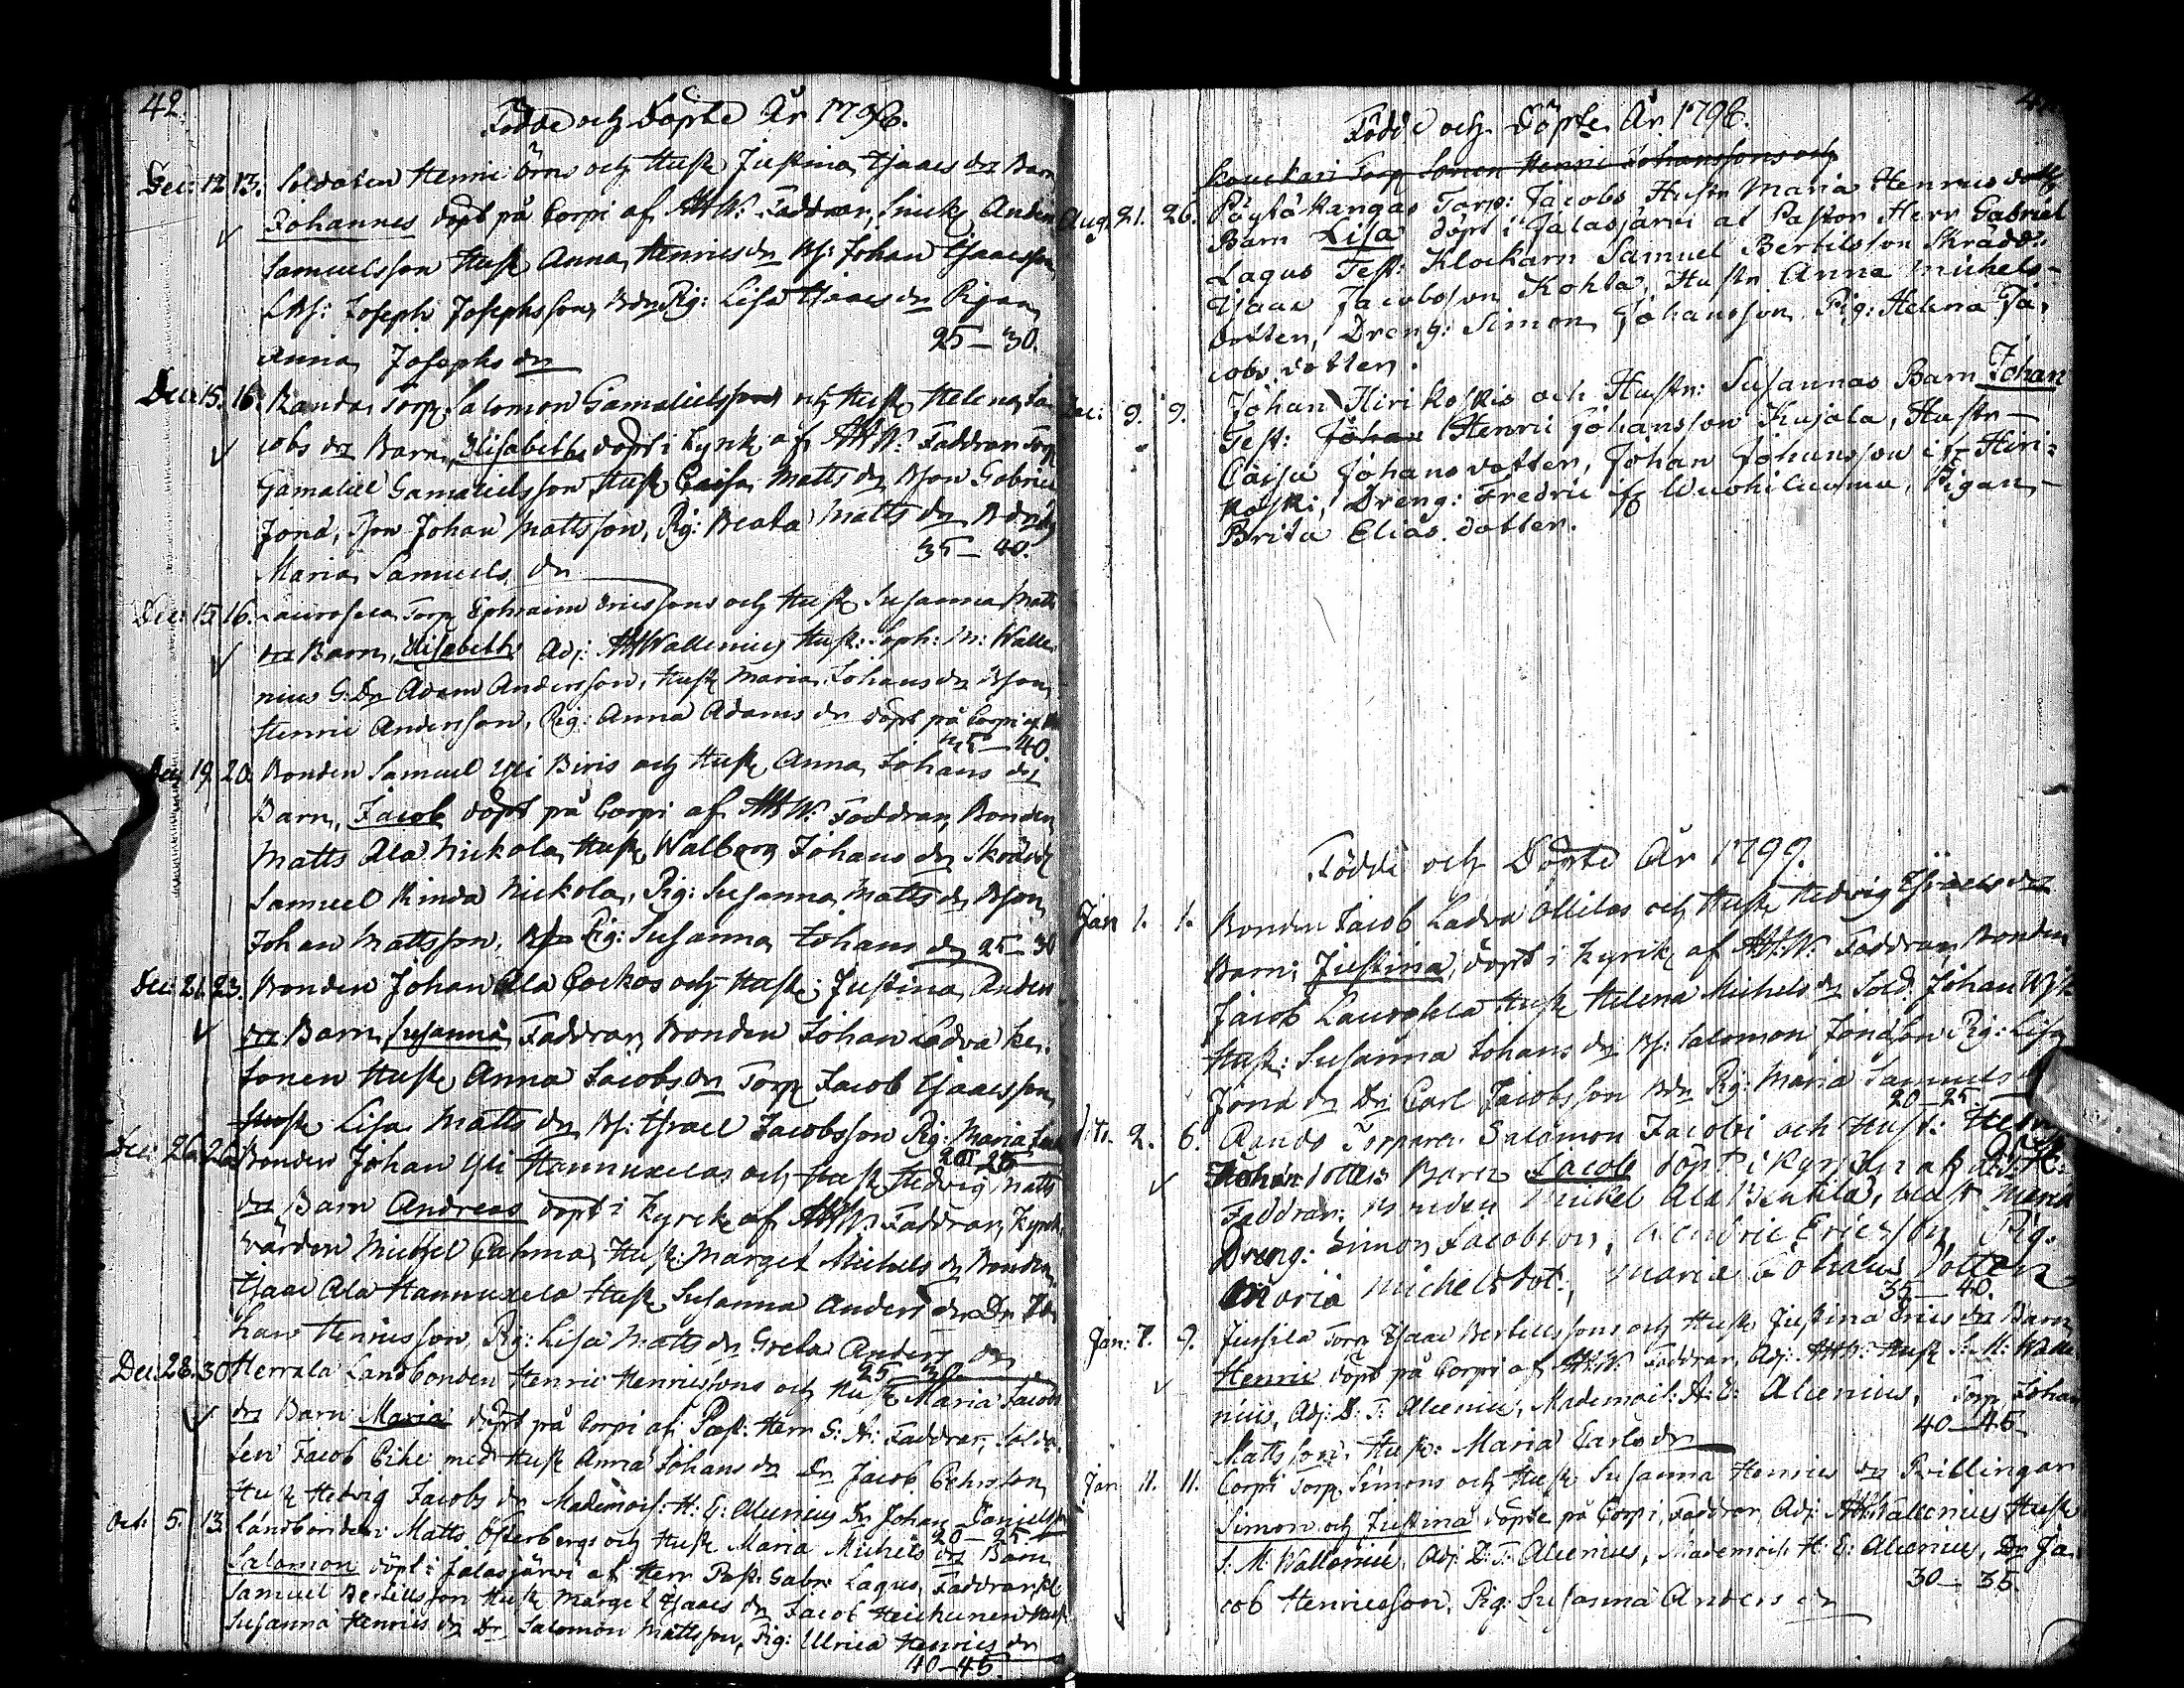 42.
Födde och Döpte År 1798.
Dec: 12. 13. Soldaten Henric Örns och Hustr Justina Isaacs dr Barn
Johannes döpt på Corpi af AHW: Faddrar, Anders
Samuelsson Hustr Anna Henrics dr Bs: Johan Isaacsson
Bs: Joseph Josephsson, Bdr Pig: Lisa Isaacs dr Pigan
Anna Josephs dr 25–30.
Dec: 15. 16. Randa Torp Salomon Gamalielssons och Hustr Helena Ja
cobs dr Barn, Elisabeth döpt i Kyrk af AHW: Faddrar Torp
Gamaliel Gamalielsson Hustr Caisa Matts dr Bson Gabriel
Jona, Bson Johan Mattsson, Pig: Beata Matts dr Bdr
Maria Samuels dr 35–40.
Dec: 15. 16. Laurosela Torp Ephraim Ericssons och Hustr Susanna Matts
dr Barn, Elisabeth Adj: AHWallenius Hustr: Soph: M: Walle
nius G: Dr Adam Andersson, Hustr Maria Johans dr Bson
Henric Andersson, Pig: Anna Adams dr döpt på Corpi af
35–40.
Dec 19. 20. Bonden Samuel Yli Biris och Hustr Anna Johans dr
Barn, Jacob döpt på Corpi af AHW: Faddrar, Bonden
Matts Ala Nickola Hustr Walborg Johans dr Skrädd
Samuel Rinda Nickola, Pig: Susanna Matts dr Bson
Johan Mattsson, Pig: Susanna Johans dr 25–30
Dec: 21. 23. Bonden Johan Ala Cockos och Hustr: Justina Anders
dr Barn Susanna Faddrar Bonden Johan Ladva Ke
tonen Hustr Anna Jacobs dr Torp Jacob Isaacsson
Hustr Lisa Matts dr Bs: Israel Jacobsson Pig: Maria
20 25
Dec: 26. 26. Bonden Johan Yli Hannuxelas och Hustr Hedvig Matts
dr Barn Andreas döpt i Kyrck af AHW: Faddrar, Kyrck
värden Michel Pahma, Hustr: Marget Michels dr Bonden
Isaac Ala Hannuxela Hustr Susanna Anders dr Dr Jo
han Henricsson, Pig: Lisa Matts dr Greta Anders dr
25 30.
Dec. 28. 30 Herrala Landbonden Henric Henricssons och Hustr Maria Jacobs
dr Barn Maria döpt på Corpi af Past: Herr G: L: Faddrar, Solda
ten Jacob Pihl med Hustr Anna Johans dr Dr Jacob Pehrsson
Hustr Hedvig Jacobs dr Mademois: H: E: Alcenius Dr Johan Danielsson
20–25.
Oct: 5. 13. Landbonden Matts Österbergs och Hustr Maria Michels dr Barn
Salomon döpt i Jalasjärvi af Herr Past: Gabr: Lagus, Faddrar, Kl
Samuel Bertilsson Hustr Marget Isaacs dr Jacob Heickinen Hustr
Susanna Henrics dr Dr Salomon Mattsson, Pig: Ulrica Henrics dr
40–45.
Födde och Döpte År 1798.
Kouckari Torp Sonen Henric Johanssons och
Aug. 21. 26. Pöytä Kangas Torp: Jacobs Hustr Maria Henrics dottr
Barn Lisa döpt i Jalasjärvi af Pastor Herr Gabriel
Lagus Test: Klockarn Samuel Bertilsson Skrädd:
Isaac Jacobsson Kohta, Hustr Anna Michels-
dotter, Dreng: Simon Johansson, Pig: Helena Ja,
cobs dotter.
Dec: 9. 9. Johan Hirikoskis och Hustr: Susannas Barn Johan
Test: Johan Henric Johansson Kujala, Hustr
Caisa Johans dotter, Johan Johansson ifr Hiri:
koski, Dreng: Fredric ifr Wuohiluoma, Pigan
Brita Elias dotter.
Födde och Döpte År 1799.
Jan 1. 1. Bonden Jacob Ladva Ollilas och Hustr Hedvig Israels dr
Barn; Justina, döpt i Kyrck af AHW: Faddrar, Bonden
Jacob Laurosela Hustr Helena Michels dr Sold. Johan Wijk
Hustr: Susanna Johans dr Bs: Salomon Jonasson Pig: Lisa
Jona dr Dr Carl Jacobsson Bdr Pig: Maria Samuels
20–25.
dito. 2. 6. Rando Torparen Salomon Jacobi och Hustr: Helena
Johan dotters Barn Jacob döpt i Kyrkan af AHW:
Faddrar: Bonden Mickel Ala Penttilä, Hustr Maria
Dreng: Simon Jacobsson, Henric Ericsson, Pig.
Maria Michels dot:, Maria Johans Dotter
35–40.
Jan: 7. 9. Jussila Torp Isaac Bertilssons och Hustr Justina Erics dr Barn
Henric döpt på Corpi af AHW: Faddrar, Adj: AHW: Hustr S: M: Walle
nius, Adj: D: T: Alcenius, Mademois: H: E: Alcenius, Torp Johan
Mattsson Hustr: Maria Carls dr 40–45
Jan 11. 11. Corpi Torp Simons och Hustr Susanna Henrics dr Tvillingar
Simon och Justina döpte på Corpi, Faddrar Adj: AHWallenius Hustr
S: M: Wallenius, Adj: D: T: Alcenius, Mademois: H: E: Alcenius, Dr Ja
cob Henricsson, Pig: Susanna Anders dr 30–35.